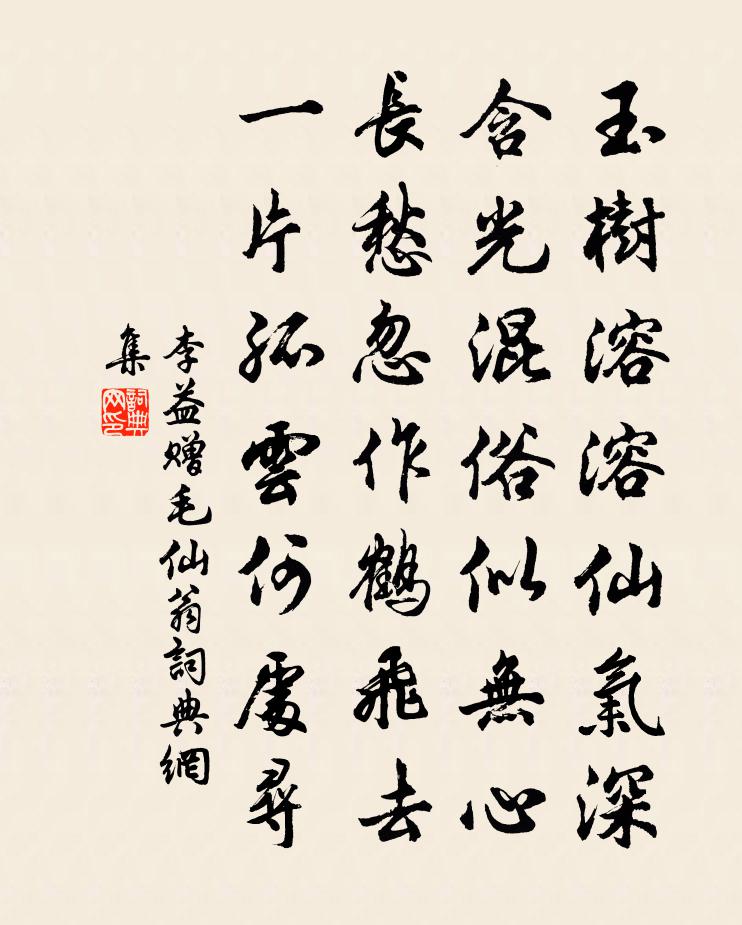 玉樹溶溶仙氣深
含光混俗似無心
長愁忽作鶴飛去
一片孤雲何處尋
李益贈毛仙翁詞典網
集
詞典
网印